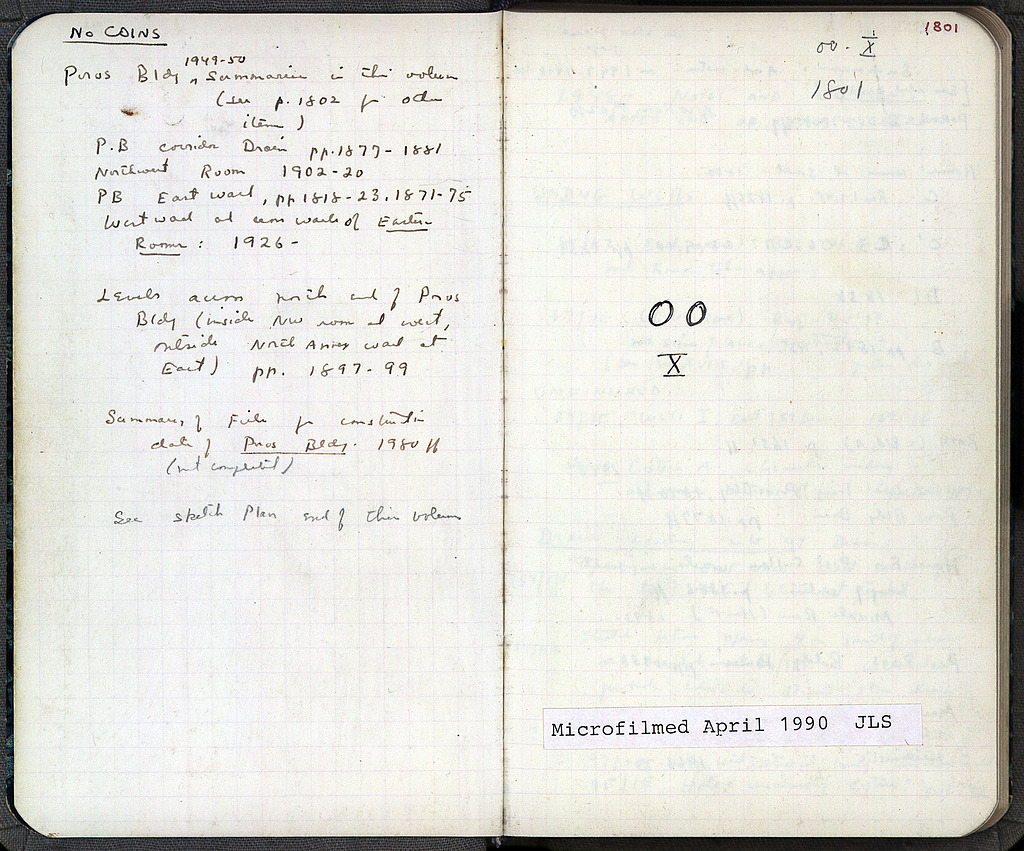 NO COINS
1949-50
Poros Bldg, Summaries in this volume
(see p. 1802 for other
items)
P.B corridor Drain pp. 1877-1881
Northwest Room 1902-20
PB East wall, pp 1818-23, 1871-75
West wall and cross walls of Eastern
Rooms: 1926-
Levels across north end of Poros
Bldg (inside NW room at west,
outside North Annex wall at
East) pp. 1897-99
Summary of Fills for construction
date of Poros Bldg. 1980 ff
(not completed)
See sketch Plan end of this volume
1801
OO - X
1801
OO
X
Microfilmed April 1990 JLS